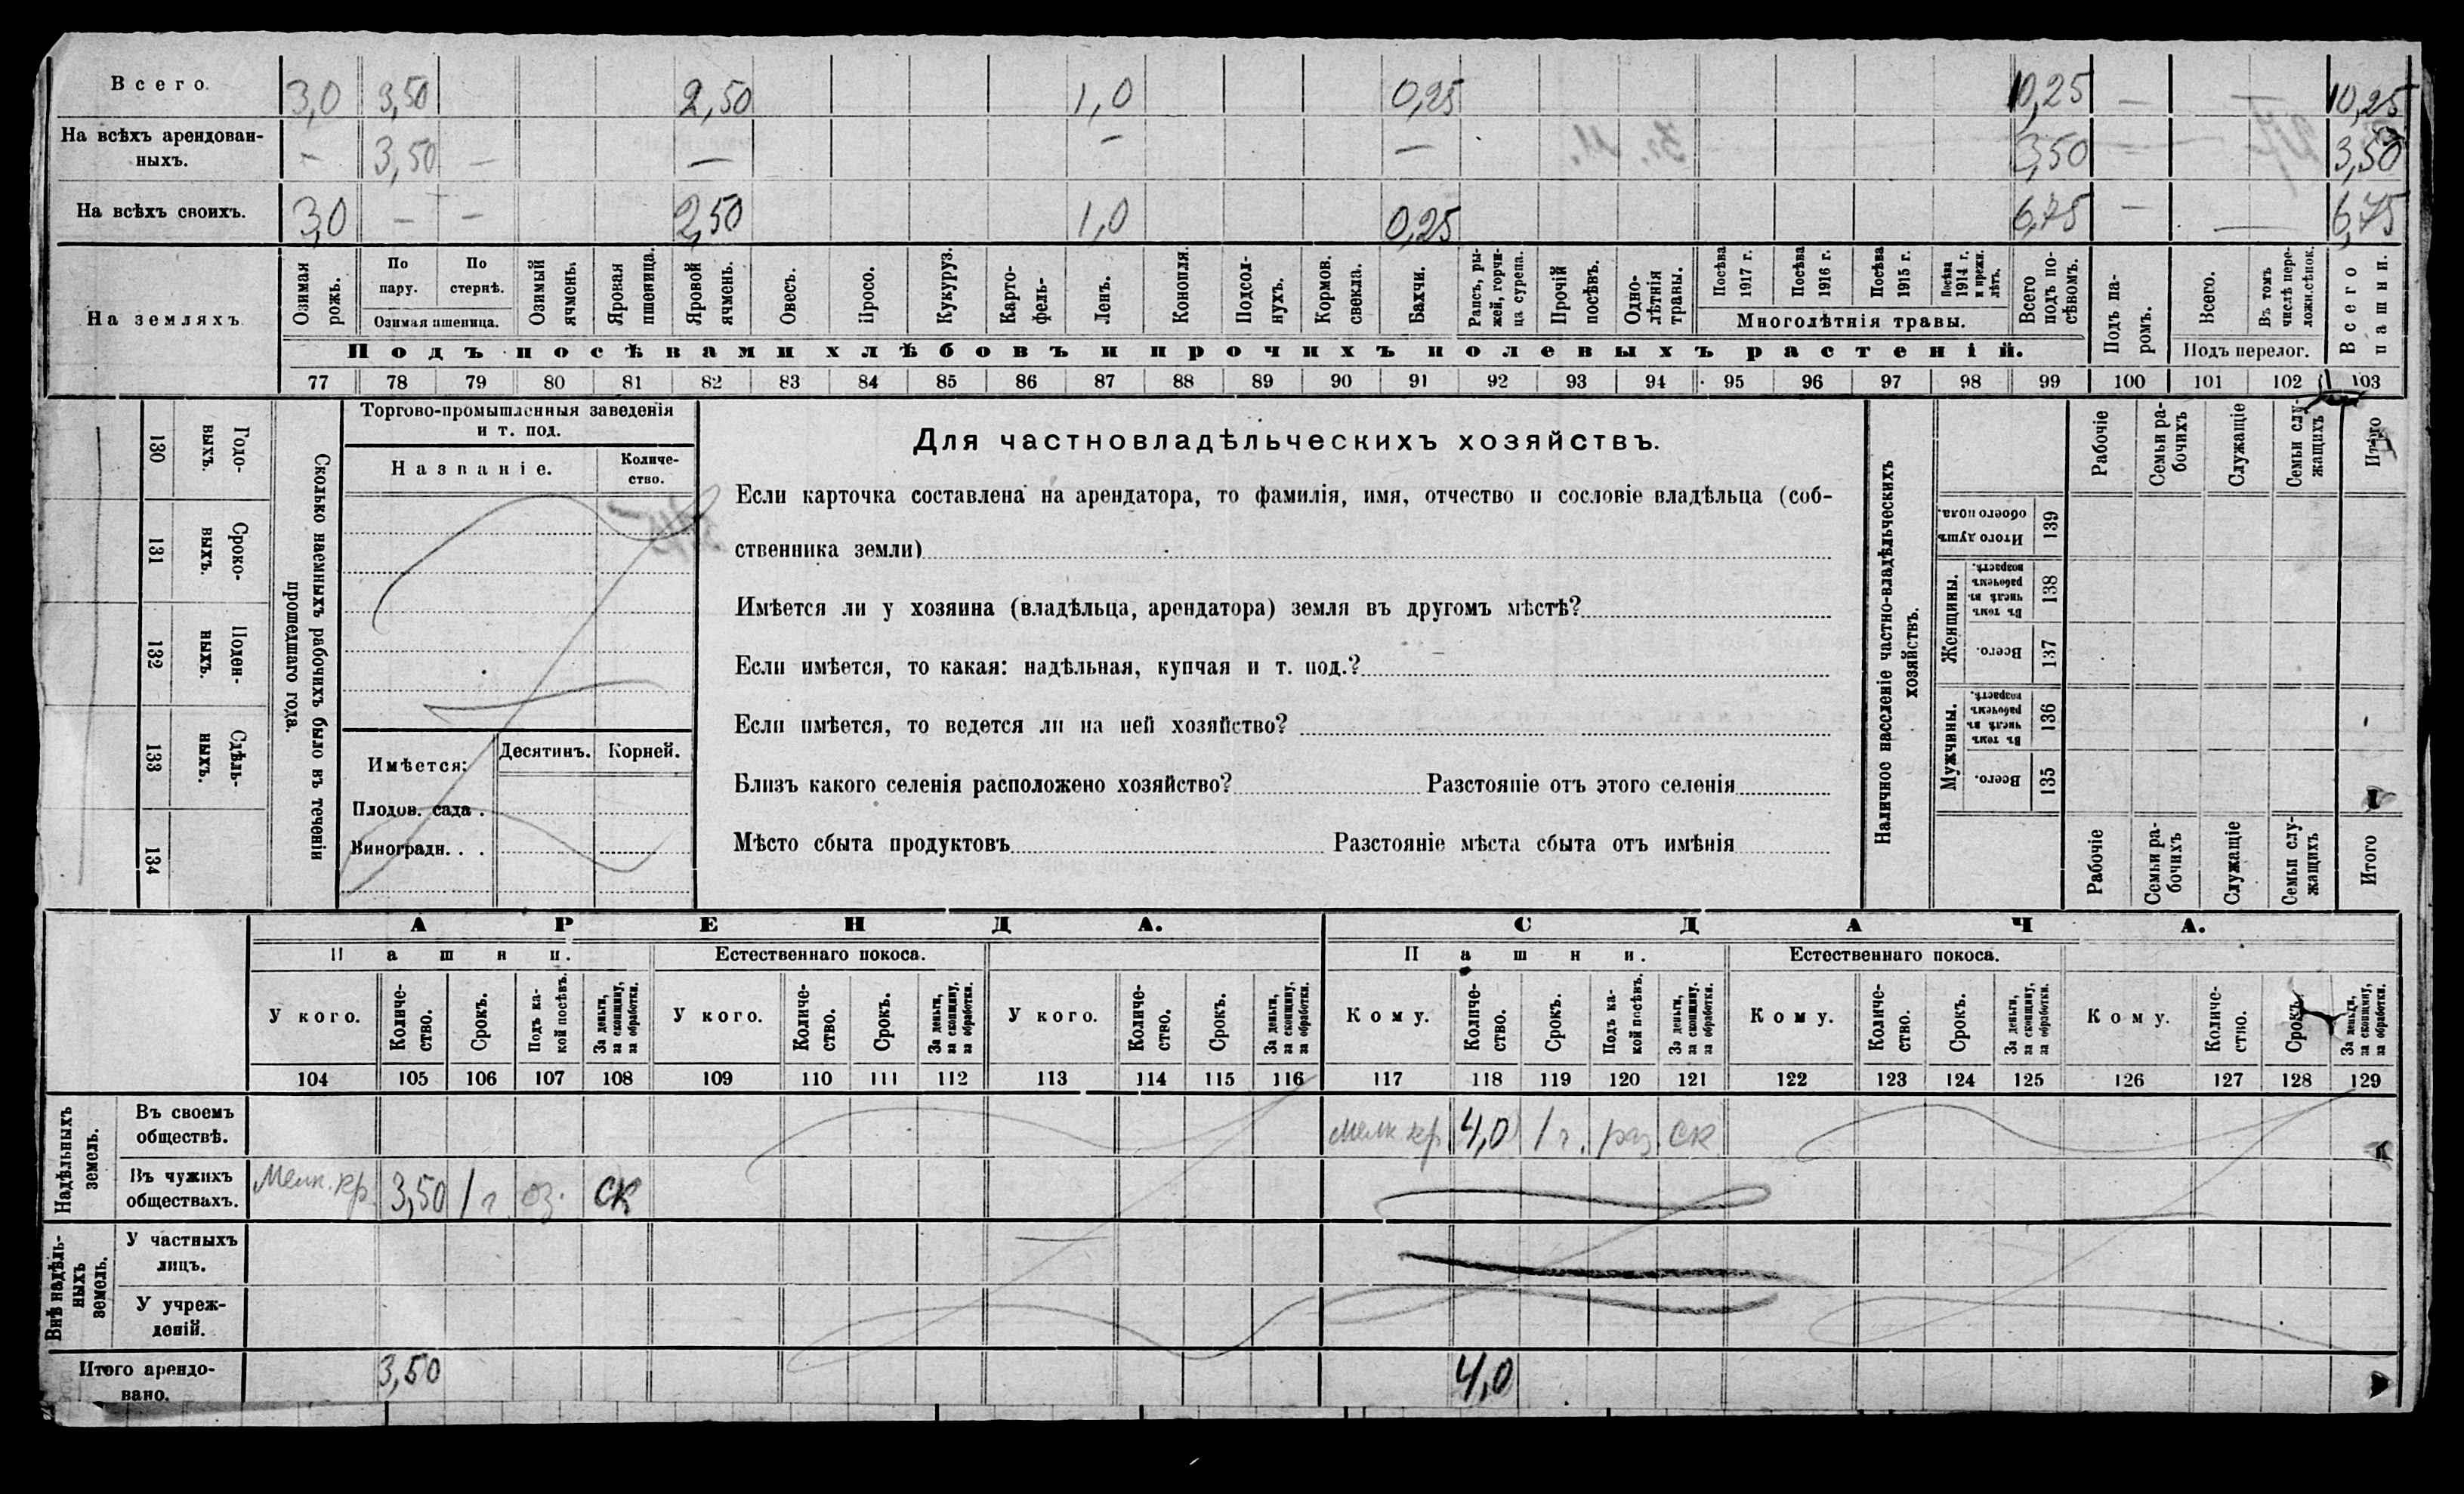 Всего. 3,0 3,50 2,50 1,0 0,25 10,25 — 10,25
На всѣхъ арендован-
ныхъ. — 3,50 — — — — 3,50 — 3,50
На всѣхъ своихъ. 3,0 — — 2,50 1,0 0,25 6,75 — — 6,75
На земляхъ
Озимая рожь.
По пару.
По стернѣ.
Озимая пшеница.
Озимый ячмень.
Яровая пшеница.
Яровой ячмень.
Овесъ.
Просо.
Кукуруз.
Карто-
фель.
Ленъ.
Конопля.
Подсол-
нухъ.
Кормов. свекла.
Бахчи.
Рапсъ, ры-
жей, горчи-
ца сурепа.
Прочій посѣвъ.
Одно-
лѣтнія травы.
Посѣва 1917 г.
Посѣва 1916 г.
Посѣва 1915 г.
Посѣва 1914 г. и прежн. лѣтъ.
Многолѣтнія травы.
Всего подъ по-
сѣвомъ.
Подъ па-
ромъ.
Всего.
Въ томъ числѣ пере-
ложн. сѣнок.
Подъ перелог.
Всего пашни.
Подъ посѣвами хлѣбовъ и прочихъ полевыхъ растеній.
77 78 79 80 81 82 83 84 85 86 87 88 89 90 91 92 93 94 95 96 97 98 99 100 101 102 103
130 Годо-
выхъ.
131 Сроко-
выхъ.
132 Поден-
ныхъ.
133 Сдѣль-
ныхъ.
134
Сколько наемныхъ рабочихъ было въ теченіи
прошедшаго года.
Торгово-промышленныя заведенія
и т. под.
Названіе. Количе-
ство.
Имѣется: Десятинъ. Корней.
Плодов. сада .
Виноградн. . .
Для частновладѣльческихъ хозяйствъ.
Если карточка составлена на арендатора, то фамилія, имя, отчество и сословіе владѣльца (соб-
ственника земли)
Имѣется ли у хозяина (владѣльца, арендатора) земля въ другомъ мѣстѣ?
Если имѣется, то какая: надѣльная, купчая и т. под.?
Если имѣется, то ведется ли на ней хозяйство?
Близъ какого селенія расположено хозяйство? Разстояніе отъ этого селенія
Мѣсто сбыта продуктовъ Разстояніе мѣста сбыта отъ имѣнія
Наличное населеніе частно-владѣльческихъ
хозяйствъ.
Рабочіе
Семьи ра-
бочихъ
Служащіе
Семьи слу-
жащихъ
Итого
Итого душъ обоего пола. 139
Женщины.
Въ томъ числѣ въ рабочемъ возрастѣ. 138
Всего. 137
Мужчины.
Въ томъ числѣ въ рабочемъ возрастѣ. 136
Всего. 135
Рабочіе
Семьи ра-
бочихъ
Служащіе
Семьи слу-
жащихъ
Итого
АРЕНДА. СДАЧА.
Пашни. Естественнаго покоса. Пашни. Естественнаго покоса.
У кого.
Количе-
ство.
Срокъ.
Подъ ка-
кой посѣвъ.
За деньги,
за скопщину,
за обработки.
У кого.
Количе-
ство.
Срокъ.
За деньги,
за скопщину,
за обработки.
У кого.
Количе-
ство.
Срокъ.
За деньги,
за скопщину,
за обработки.
Кому.
Количе-
ство.
Срокъ.
Подъ ка-
кой посѣвъ.
За деньги,
за скопщину,
за обработки.
Кому.
Количе-
ство.
Срокъ.
За деньги,
за скопщину,
за обработки.
Кому.
Количе-
ство.
Срокъ.
За деньги,
за скопщину,
за обработки.
104 105 106 107 108 109 110 111 112 113 114 115 116 117 118 119 120 121 122 123 124 125 126 127 128 129
Надѣльныхъ
земель.
Въ своемъ
обществѣ. мелк кр 4,0 1 г. раз. ск
Въ чужихъ
обществахъ. Мелк. кр. 3,50 1 г оз. ск
Внѣ надѣль-
ныхъ
земель.
У частныхъ
лицъ.
У учреж-
деній.
Итого арендо-
вано. 3,50 4,0